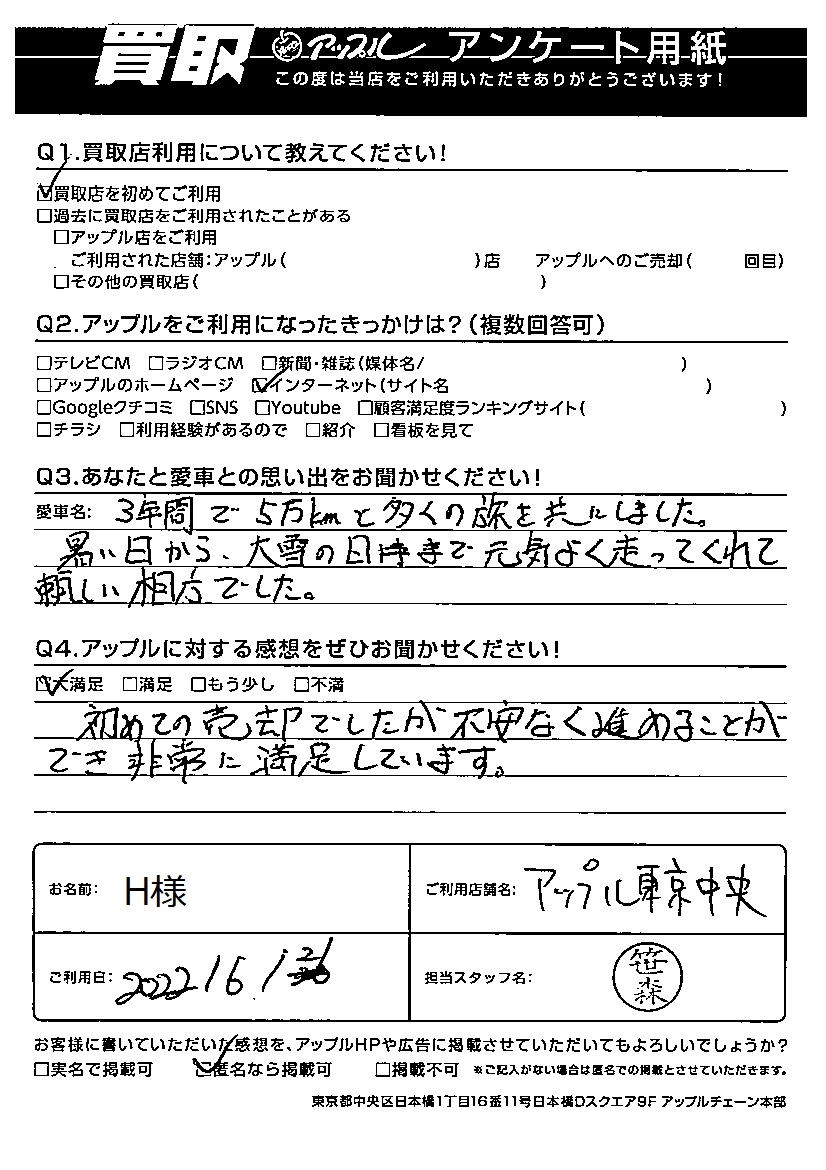 買取 アップル アンケート用紙
この度は当店をご利用いただきありがとうございます!
Q1.買取店利用について教えてください!
☑買取店を初めてご利用
□過去に買取店をご利用されたことがある
□アップル店をご利用
ご利用された店舗:アップル( )店 アップルへのご売却( 回目)
□その他の買取店( )
Q2.アップルをご利用になったきっかけは?(複数回答可)
□テレビCM □ラジオCM □新聞・雑誌(媒体名/ )
□アップルのホームページ ☑インターネット(サイト名 )
□Googleクチコミ □SNS □Youtube □顧客満足度ランキングサイト( )
□チラシ □利用経験があるので □紹介 □看板を見て
Q3.あなたと愛車との思い出をお聞かせください!
愛車名: 3年間で5万kmと多くの旅を共にしました。
暑い日から、大雪の日時まで元気よく走ってくれて
頼しい相方でした。
Q4.アップルに対する感想をぜひお聞かせください!
☑大満足 □満足 □もう少し □不満
初めての売却でしたが不安なく進めることが
でき非常に満足しています。
お名前: H様 ご利用店舗名: アップル東京中央
ご利用日: 2022/6/ 担当スタッフ名: 笹森
お客様に書いていただいた感想を、アップルHPや広告に掲載させていただいてもよろしいでしょうか?
□実名で掲載可 ☑匿名なら掲載可 □掲載不可 ※ご記入がない場合は匿名での掲載とさせていただきます。
東京都中央区日本橋1丁目16番11号日本橋Dスクエア9F アップルチェーン本部